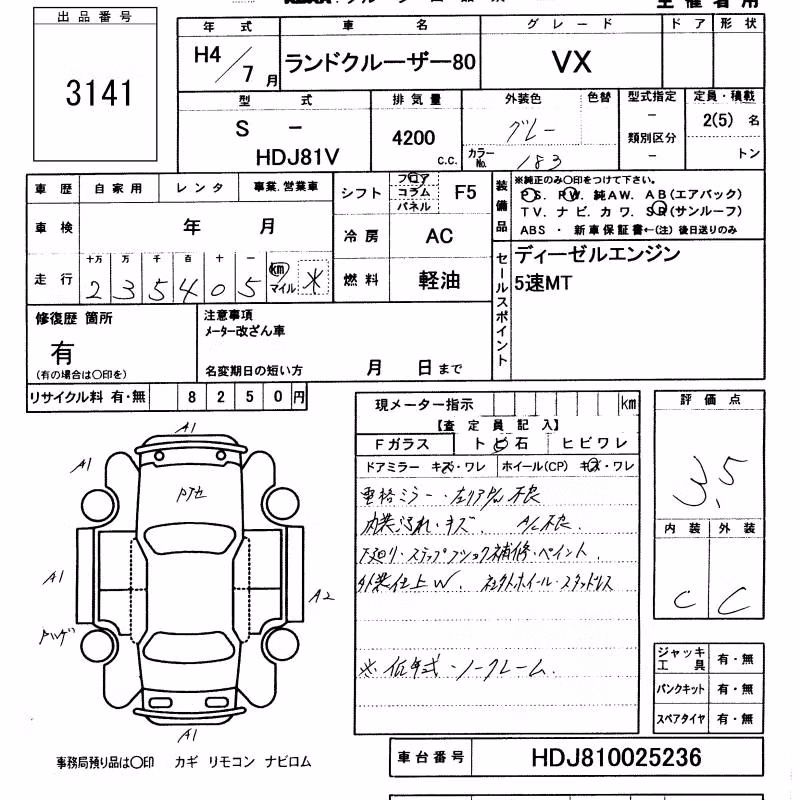 出品番号
3141
年式 車名 グレード ドア 形状
H4/7月 ランドクルーザー80 VX
型式 排気量 外装色 色替 型式指定 定員・積載
S - HDJ81V 4200 c.c. グレー - 2(5) 名
カラーNo. 183 類別区分 - トン
車歴 自家用 レンタ 事業.営業車
シフト フロア コラム パネル F5
装備品
※純正のみ〇印をつけて下さい。
PS. PW. 純AW. AB(エアバック)
TV. ナビ. カワ. SR(サンルーフ)
ABS ・ 新車保証書←(注) 後日送りのみ
車検 年 月
冷房 AC
走行 十万 万 千 百 十 一
2 3 5 4 0 5 km マイル *
燃料 軽油
セールスポイント
ディーゼルエンジン
5速MT
修復歴 箇所
有
(有の場合は〇印を)
注意事項
メーター改ざん車
名変期日の短い方 月 日まで
リサイクル料 有・無 8 2 5 0 円
現メーター指示 km
【査定員記入】
Fガラス トビ石 ヒビワレ
ドアミラー キズ・ワレ ホイール(CP) キズ・ワレ
内装汚れ・キズ. A/C不良.
下廻り・ステップフック補修・ペイント.
外装仕上W. 社外ホイール・スタッドレス
※低年式・ノークレーム.
評価点
3.5
内装 外装
C C
A1
A1
A1
A2
A1
ジャッキ工具 有・無
パンクキット 有・無
スペアタイヤ 有・無
事務局預り品は〇印 カギ リモコン ナビロム
車台番号 HDJ810025236